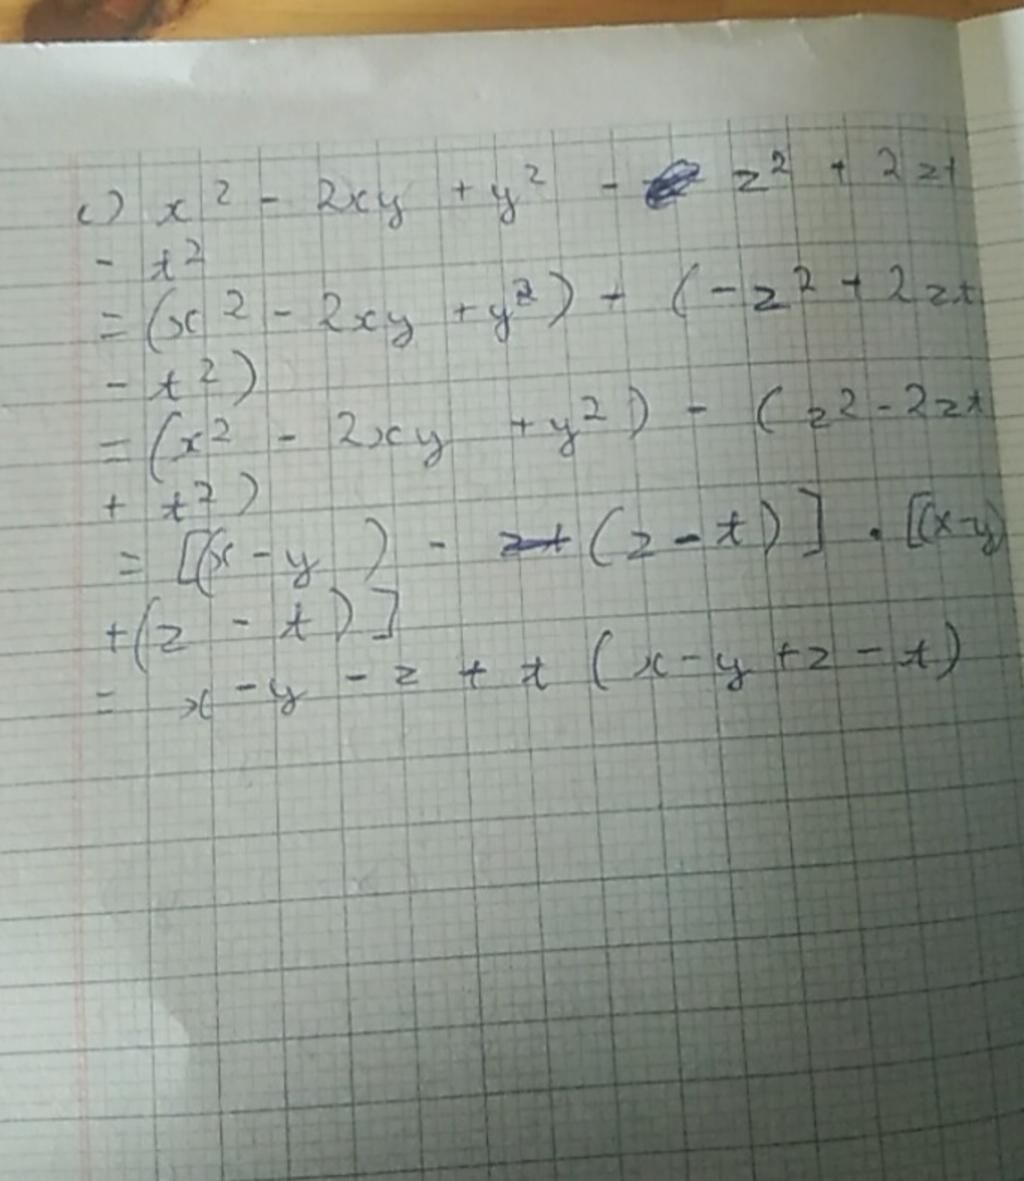 c) x² - 2xy + y² - z² + 2zt
- t²
= (x² - 2xy + y²) + (-z² + 2zt
- t²)
= (x² - 2xy + y²) - (z² - 2zt
+ t²)
= [(x - y) - (z - t)] . [(x-y)
+ (z - t)]
= x - y - z + t (x - y + z - t)